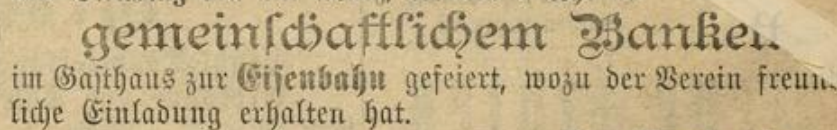 gemeinſchaftlichem Banket
im Gaſthaus zur Eiſenbahn gefeiert, wozu der Verein freun
liche Einladung erhalten hat.